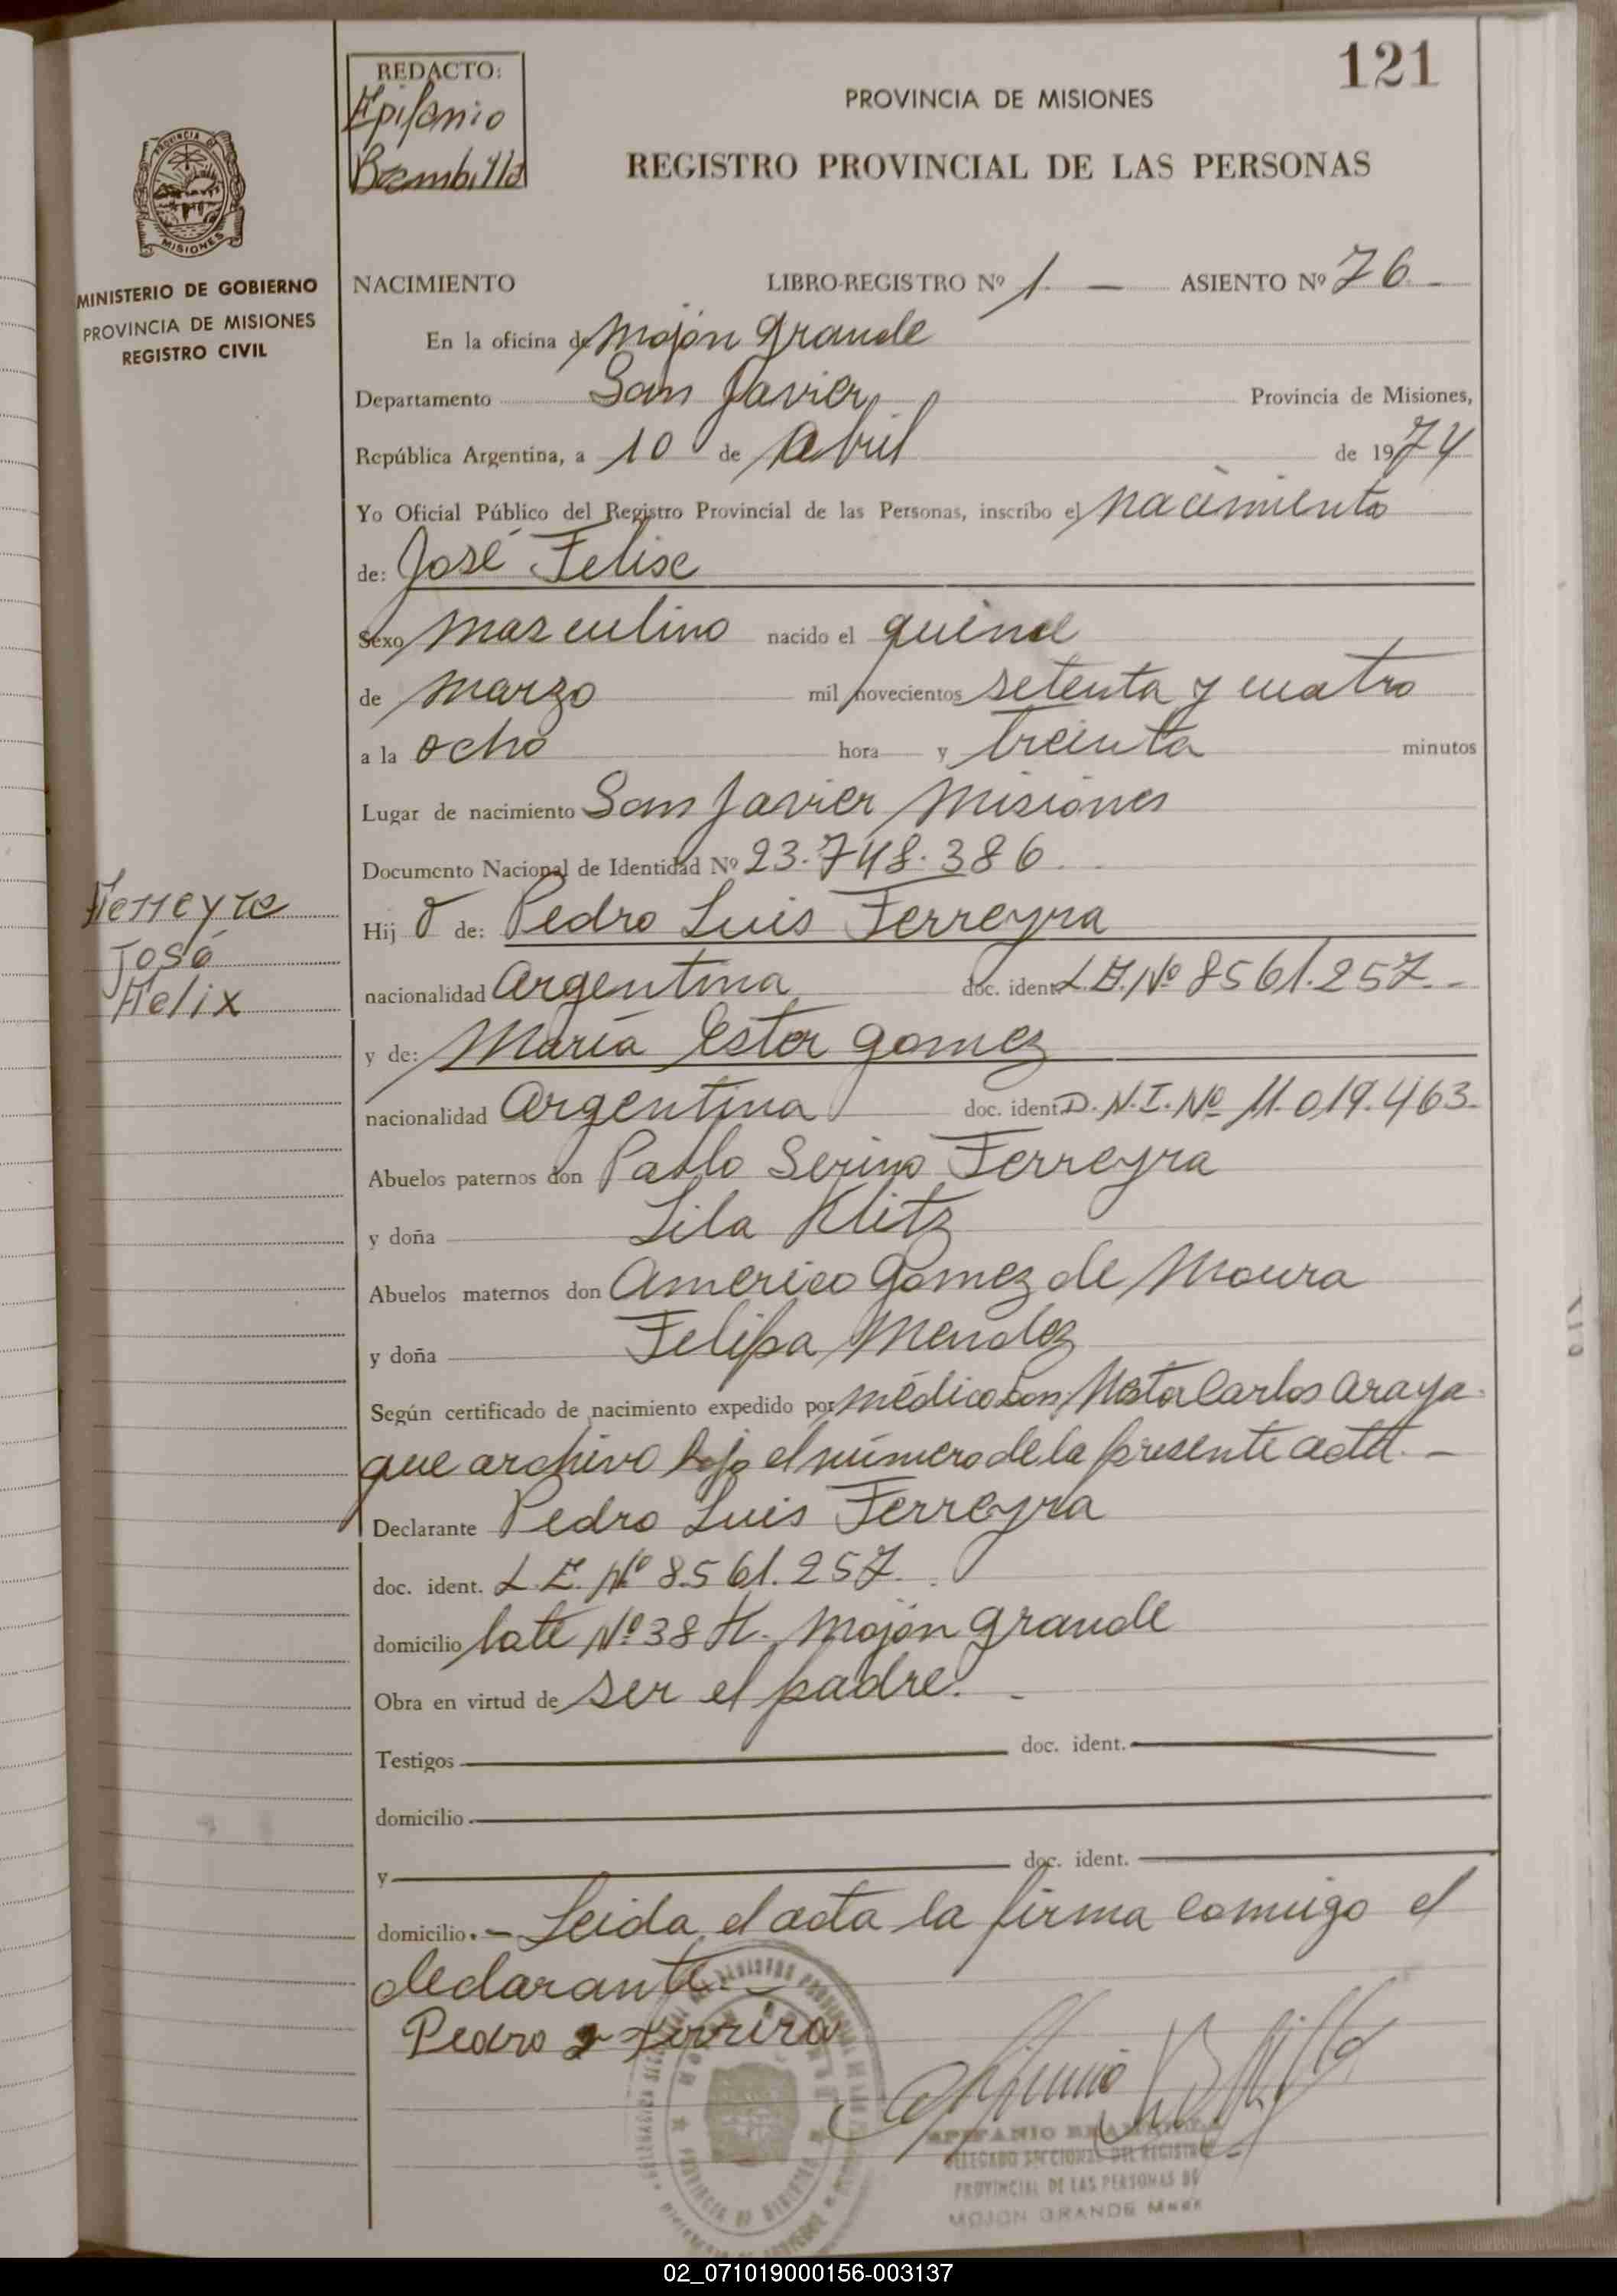 121
REDACTO:
Epifanio
Brambilla
PROVINCIA DE MISIONES
REGISTRO PROVINCIAL DE LAS PERSONAS
PROVINCIA DE
MISIONES
MINISTERIO DE GOBIERNO
PROVINCIA DE MISIONES
REGISTRO CIVIL
NACIMIENTO LIBRO-REGISTRO Nº 1. — ASIENTO Nº 76 -
En la oficina de Mojón Grande
Departamento San Javier Provincia de Misiones,
República Argentina, a 10 de Abril de 1974
Yo Oficial Público del Registro Provincial de las Personas, inscribo el nacimiento
de: José Felix
Sexo masculino nacido el quince
de marzo mil novecientos setenta y cuatro
a la ocho hora y treinta minutos
Lugar de nacimiento San Javier Misiones
Documento Nacional de Identidad Nº 23.748.386.
Ferreyra
José
Felix
Hij o de: Pedro Luis Ferreyra
nacionalidad Argentina doc. ident. L.E. Nº 8561.257.-
y de: María Ester Gomez
nacionalidad Argentina doc. ident. D.N.I. Nº 11.019.463.
Abuelos paternos don Pablo Serino Ferreyra
y doña Lila Klitz
Abuelos maternos don Americo Gomez de Moura
y doña Felipa Mendez
Según certificado de nacimiento expedido por médico Don Nestor Carlos Araya
que archivo bajo el número de la presente acta. -
Declarante Pedro Luis Ferreyra
doc. ident. L.E. Nº 8.561.257.
domicilio lote Nº 38 H. Mojón Grande
Obra en virtud de ser el padre. -
Testigos doc. ident.
domicilio
y doc. ident.
domicilio. - Leida el acta la firma comigo el
declarante. -
Pedro L Ferrira
EPIFANIO BRAMBILLA
DELEGADO SECCIONAL DEL REGISTRO
PROVINCIAL DE LAS PERSONAS DE
MOJON GRANDE Mnes
02_071019000156-003137